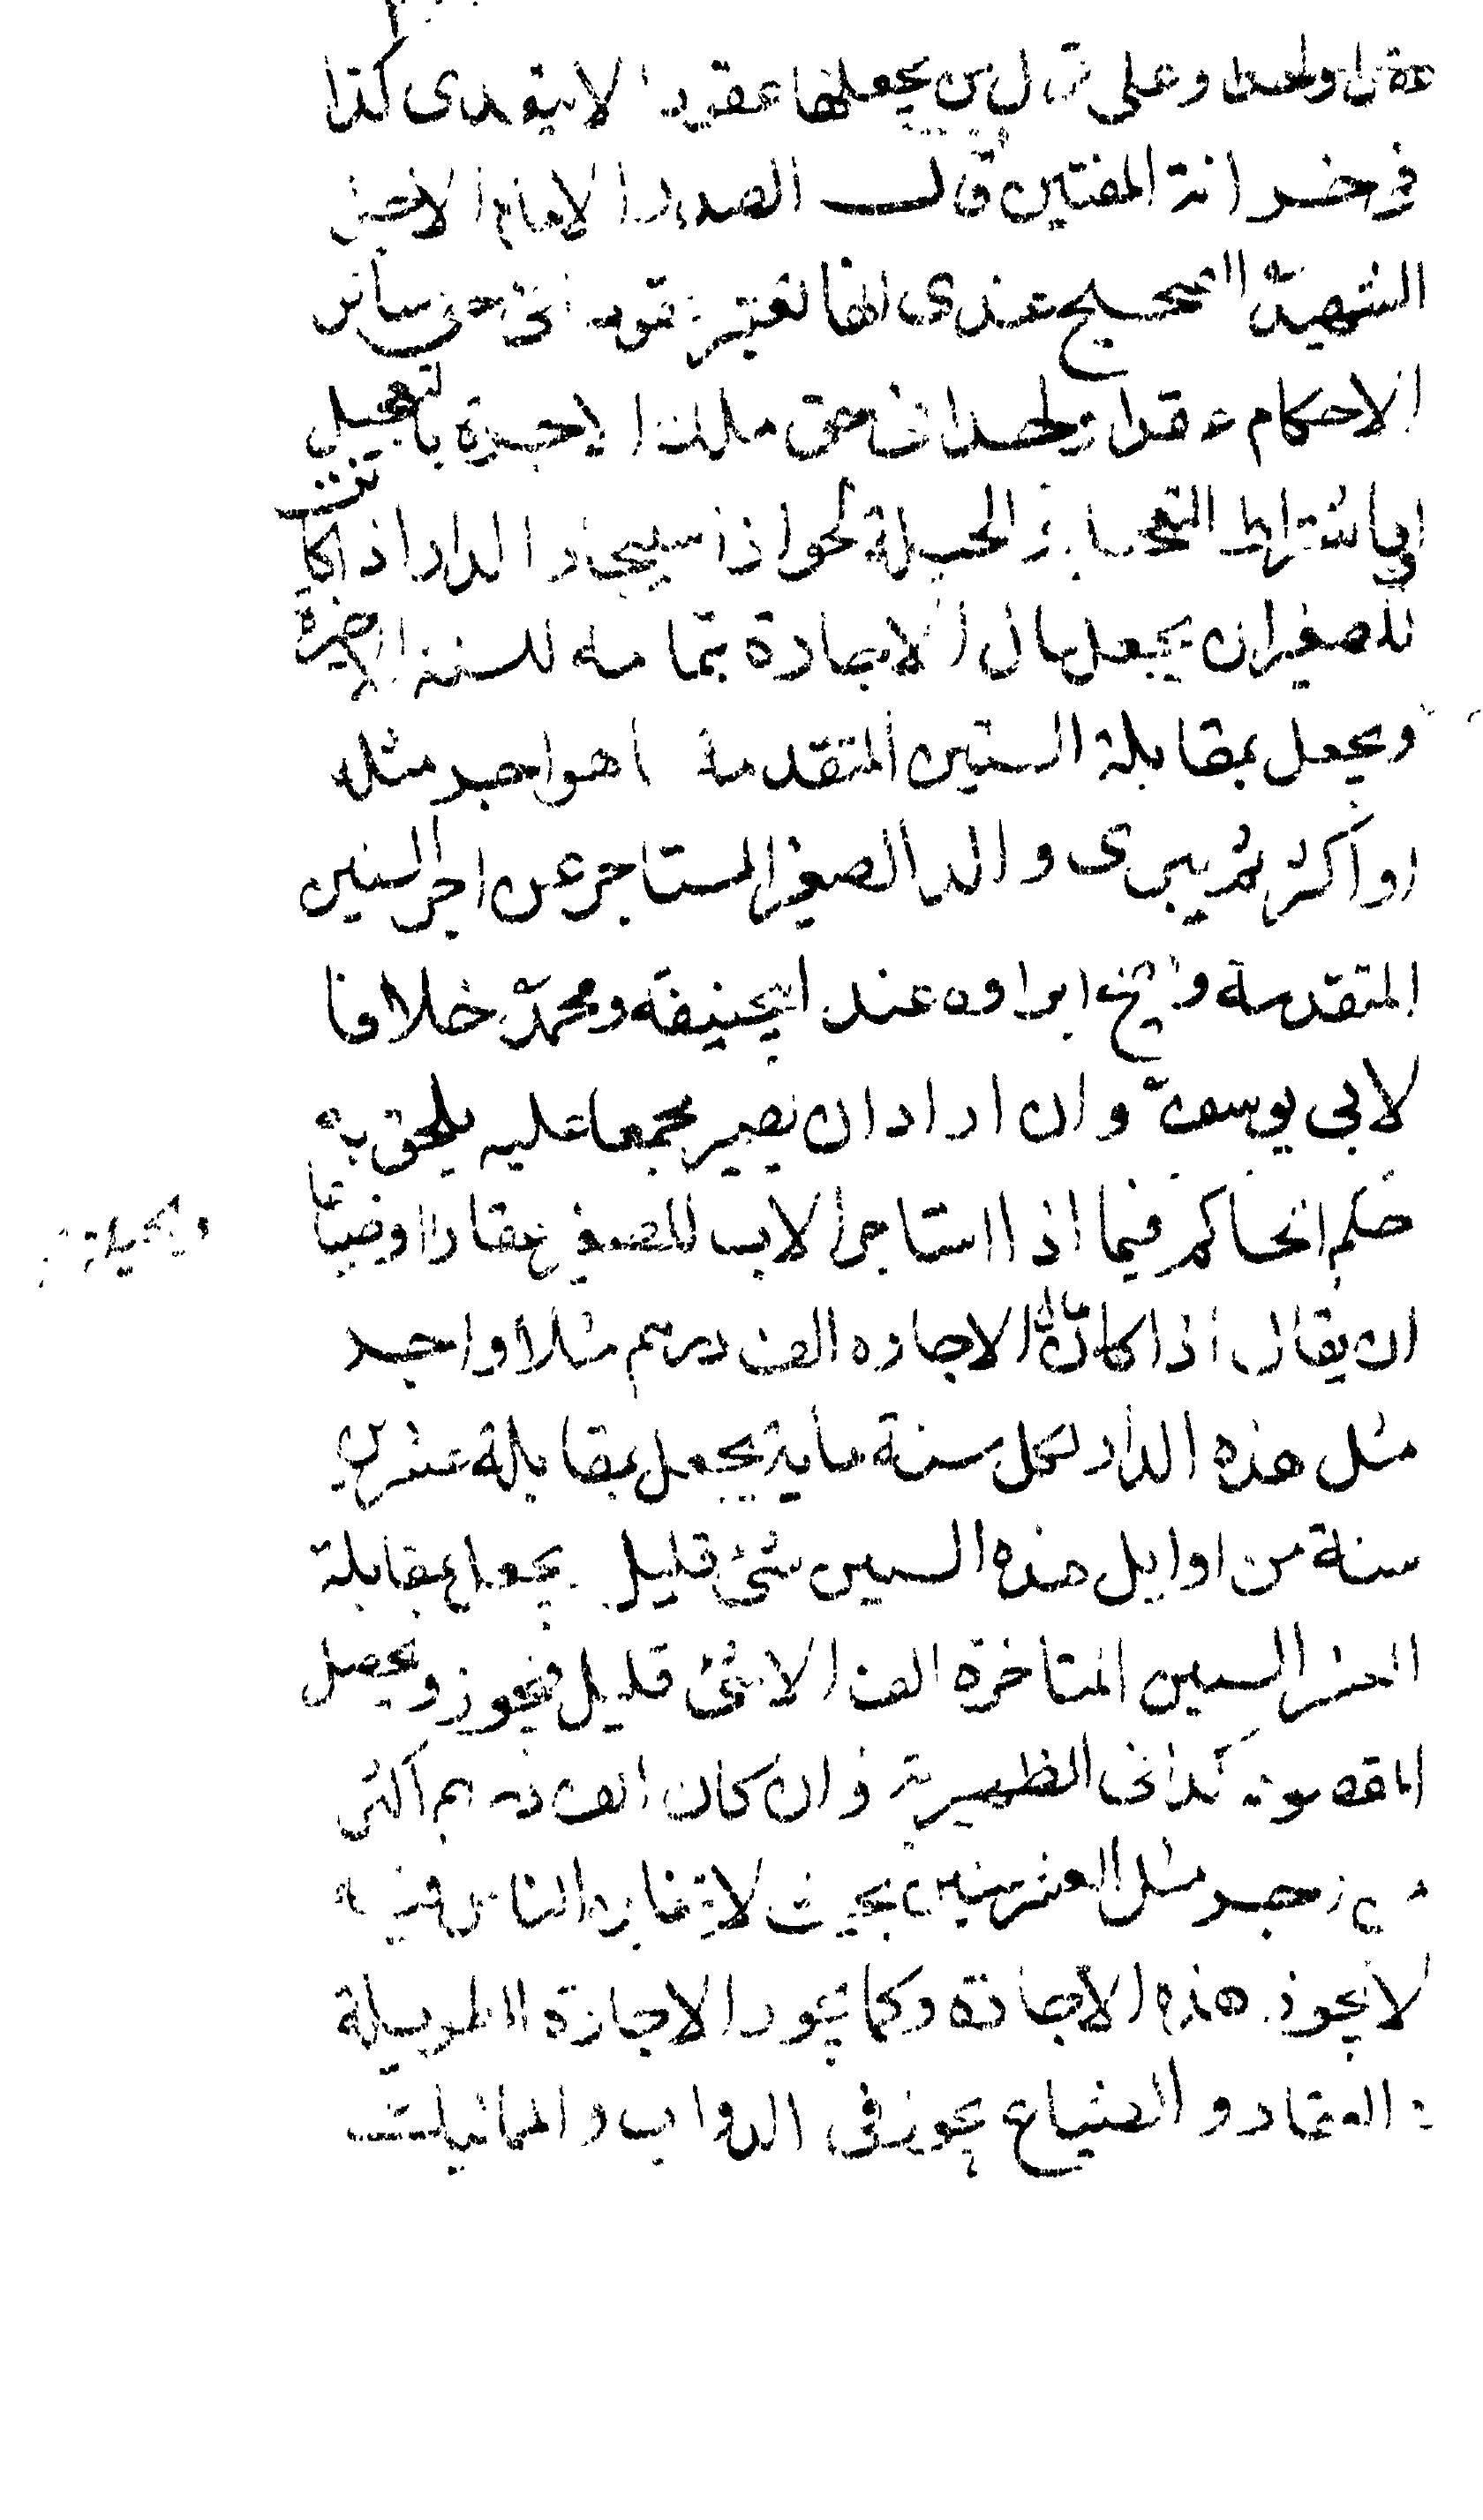 عقدا واحدا وعلى قول من يجعلها عقودا لا يتعدى كذا
في خزانة المفتين قال الصدر الامام الاجل
الشهيد الصحيح عندى انها تعتبر عقودا فى حق سائر
الاحكام عقدا واحدا فى حق ملك الاجرة بالتعجيل
او باشتراط التعجيل الحيلة لجواز استيجار الدار اذا كانت
للصغير ان يجعل مال الاجارة بتمامه للسنة الاخيرة
ويجعل بمقابلة السنين المتقدمة ما هو اجر مثله
او اكثر ثم يبرى والد الصغير المستاجر عن اجر السنين
المتقدمة ويصح ابراوه عند ابيحنيفة ومحمد خلافا
لابى يوسف وان اراد ان يصير مجمعا عليه يلحق به
حكم الحاكم فيما اذا استاجر الاب للصغير عقارا وضياعا
والحيلة
ان يقال اذا كان مال الاجاره الف درهم مثلا واجر
مثل هذه الدار لكل سنة ماية يجعل بمقابلة عشرين
سنة من اوايل هذه السنين شئ قليل يجعل بمقابلة
العشر السنين المتاخرة الف الا شئ قليل فيجوز ويحصل
المقصود كذا فى الظهيرية وان كان الف درهم اكثر
من اجر مثل العشر سنين بحيث لا يتغابن الناس فيه
لا يجوز هذه الاجارة وكما يجوز الاجارة الطويلة
فى العقار والضياع يجوز فى الدواب والمماليك